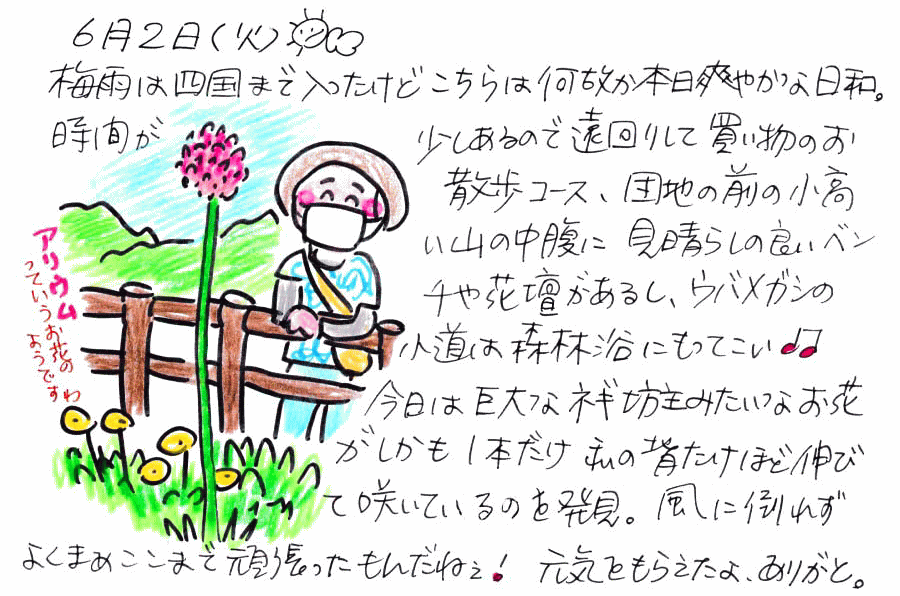 6月2日(火)
梅雨は四国まで入ったけどこちらは何故か本日爽やかな日和。
時間が少しあるので遠回りして買い物のお
散歩コース、団地の前の小高
い山の中腹に見晴らしの良いベン
チや花壇があるし、ウバメガシの
小道は森林浴にもってこい♫
今日は巨大なネギ坊主みたいなお花
がしかも1本だけ私の背たけほど伸び
て咲いているのを発見。風に倒れず
よくまぁここまで頑張ったもんだねぇ!元気をもらえたよ、ありがと。
アリウム
っていうお花の
ようですわ